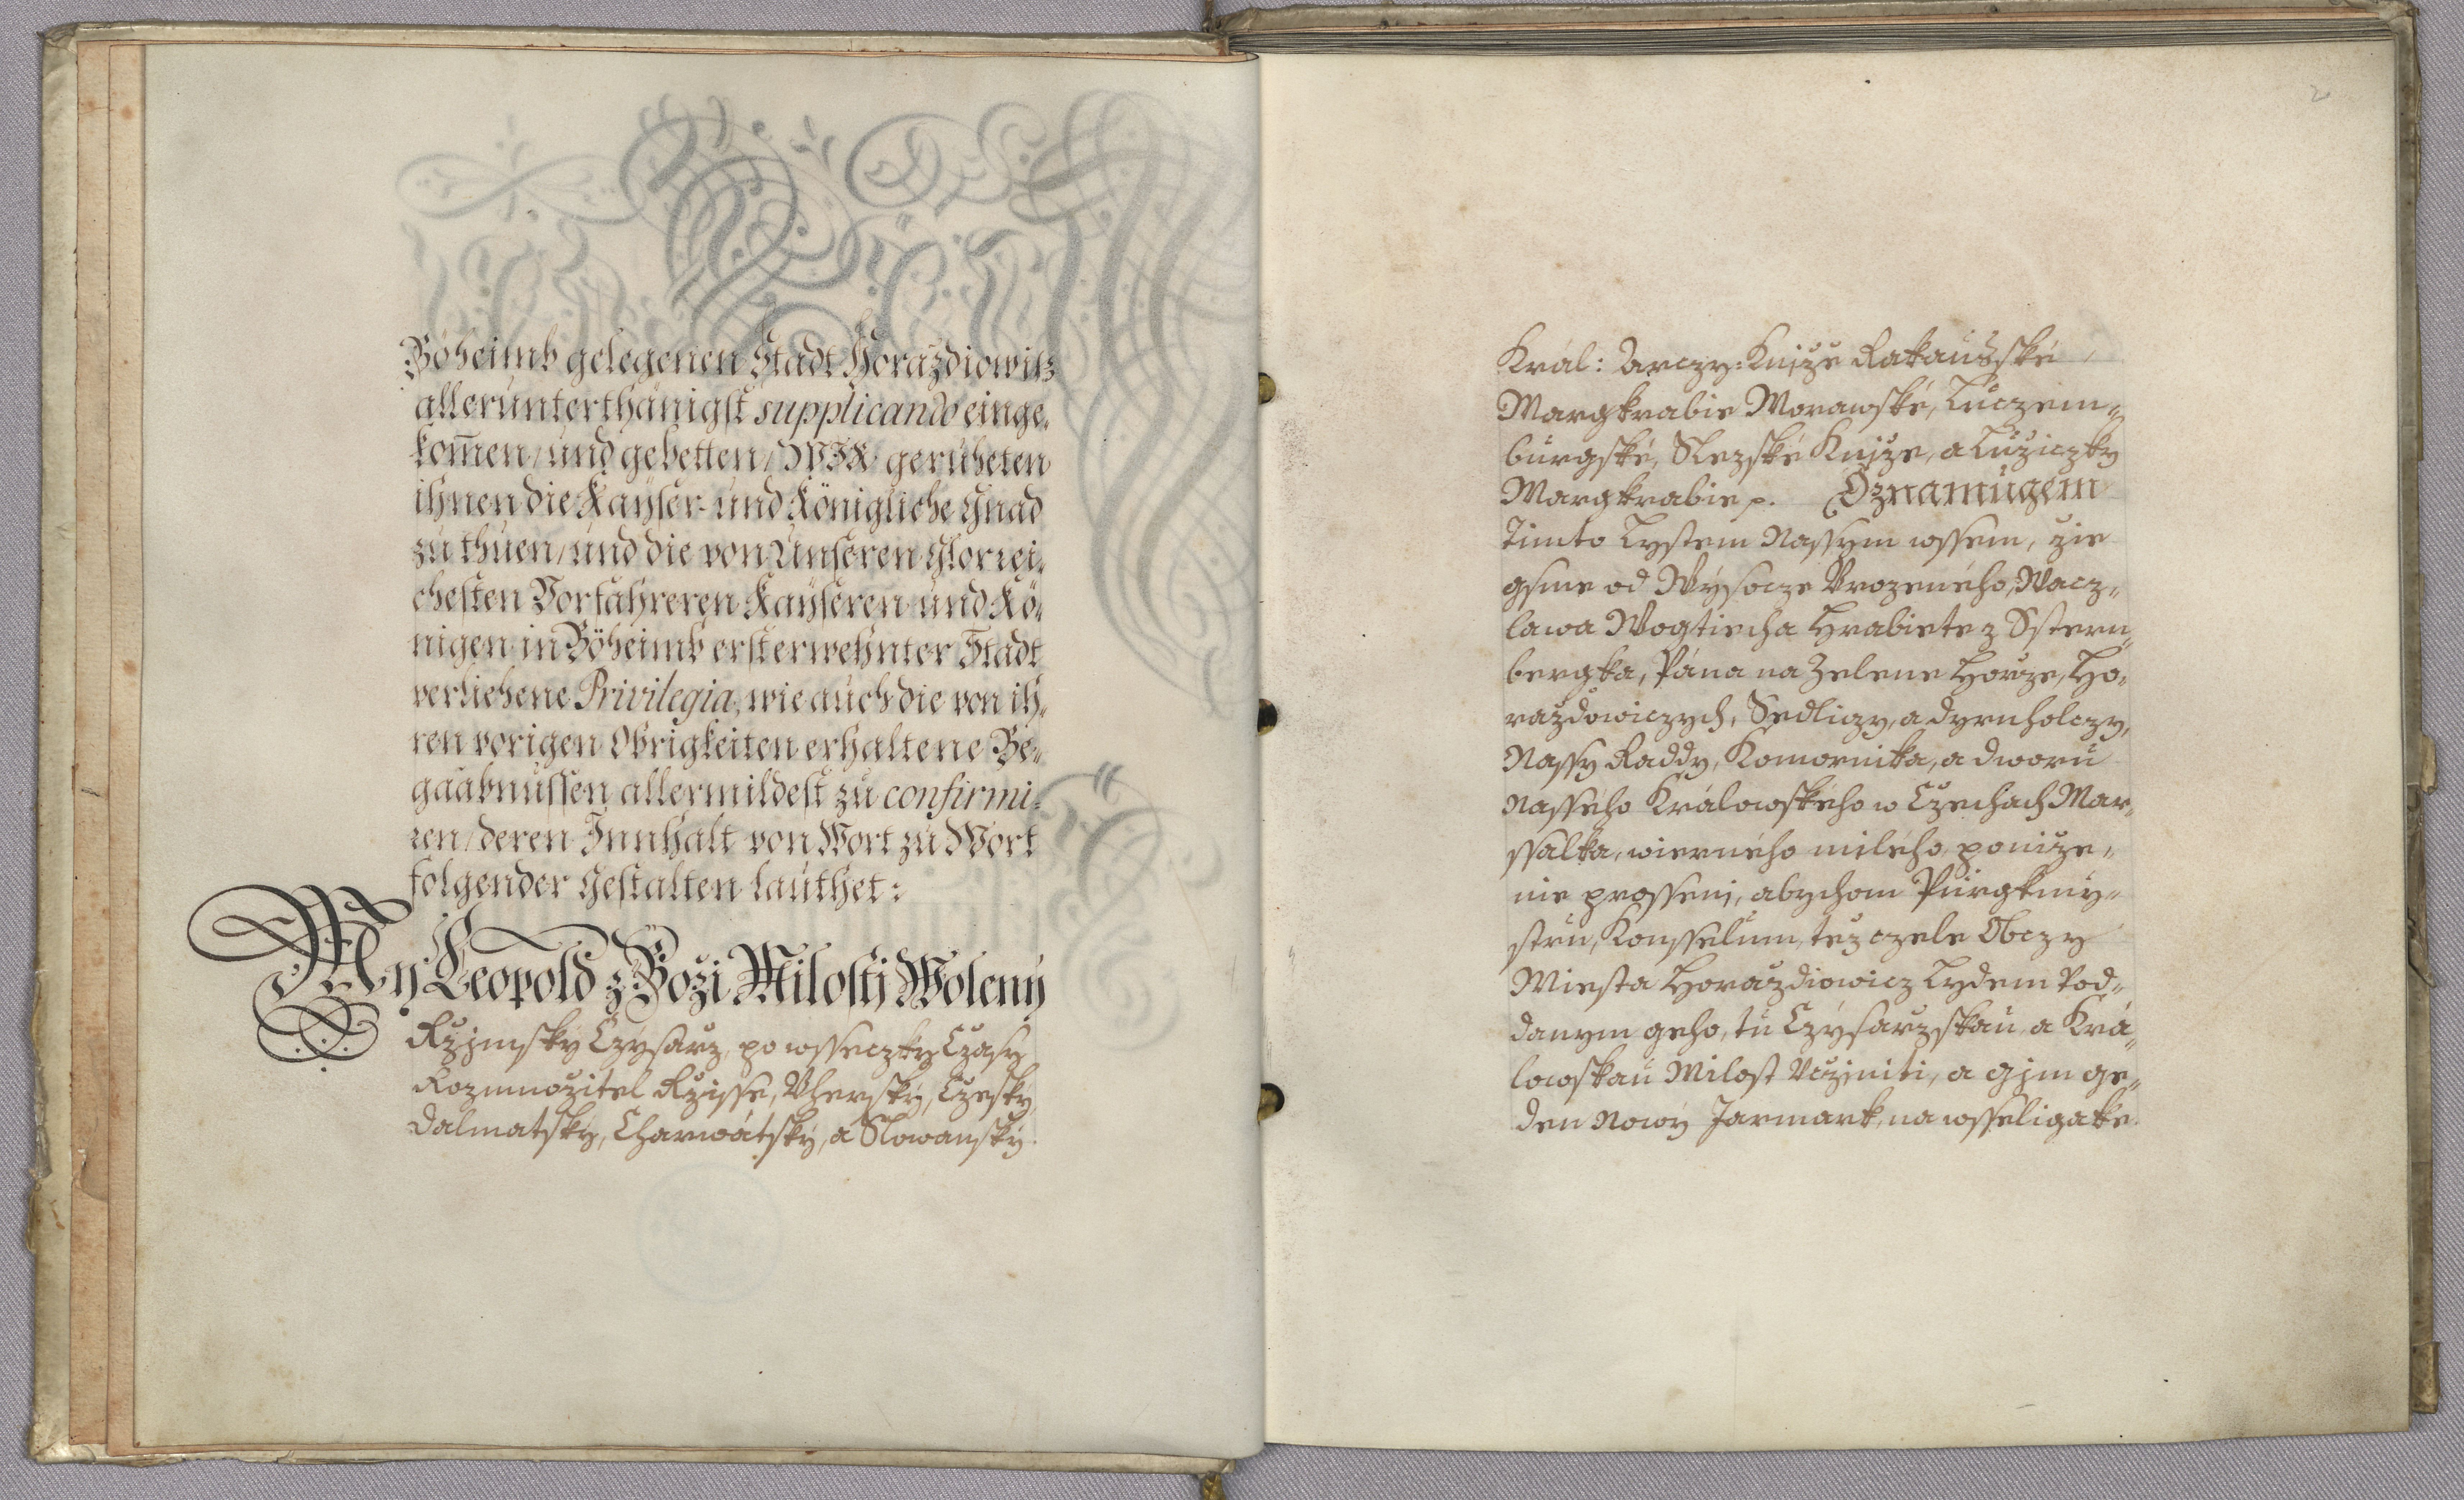 Böheimb gelegenen Stadt Horaždiowitz
allerunterthänigst supplicando einge-
kom̄en/ und gebetten/ WIR geruheten
ihnen die Kayser- und Königliche Gnad
zu thuen/ und die von Unseren Glorrei-
chesten Vorfahreren Kayseren und Kö-
nigen in Böheimb ersterwehnter Stadt
verliehene Privilegia, wie auch die von ih-
ren vorigen Obrigkeiten erhaltene Be-
gaabnussen allermildest zu confirmi-
ren/ deren Innhalt von Wort zu Wort
folgender Gestalten lauthet:
My Leopold z Boži Milosti Wolený
Ržjmský Czýsarz, po wsseczky Czasy
Rozmnožitel Ržisse, Vherský, Czeský
Dalmatský, Charwátský, a Slowanský
2
Král: Arczy: Knjže Rakaúské,
Margkrabie Morawské, Lucžem-
burgské, Slezské Knjže, a Lužiczký
Margkrabie p. Oznamugem
Timto Lystem Nassym wssem, žie
gsme od Wýsocze Vrozeného, Wacz-
lawa Wogtiecha Hrabiete z Sstern-
bergka, Pána na Zelene Horže, Ho-
raždowiczych, Sedliczy, a Dyrnholczy,
Nassy Raddy, Komornika, a dworu
Nasseho Králowského w Czechach Mar-
ssalka, wierného milého, poniže-
nie prosseni, abychom Purgkmy-
stru, Konsselum, též czele Obczy
Miesta Horaždiowicz Lydem Pod-
danym geho, tu Czýsaržskau, a Krá-
lowskau Milost Vcžiniti, a gim ge-
den Nowý Jarmark, na wsseligaké